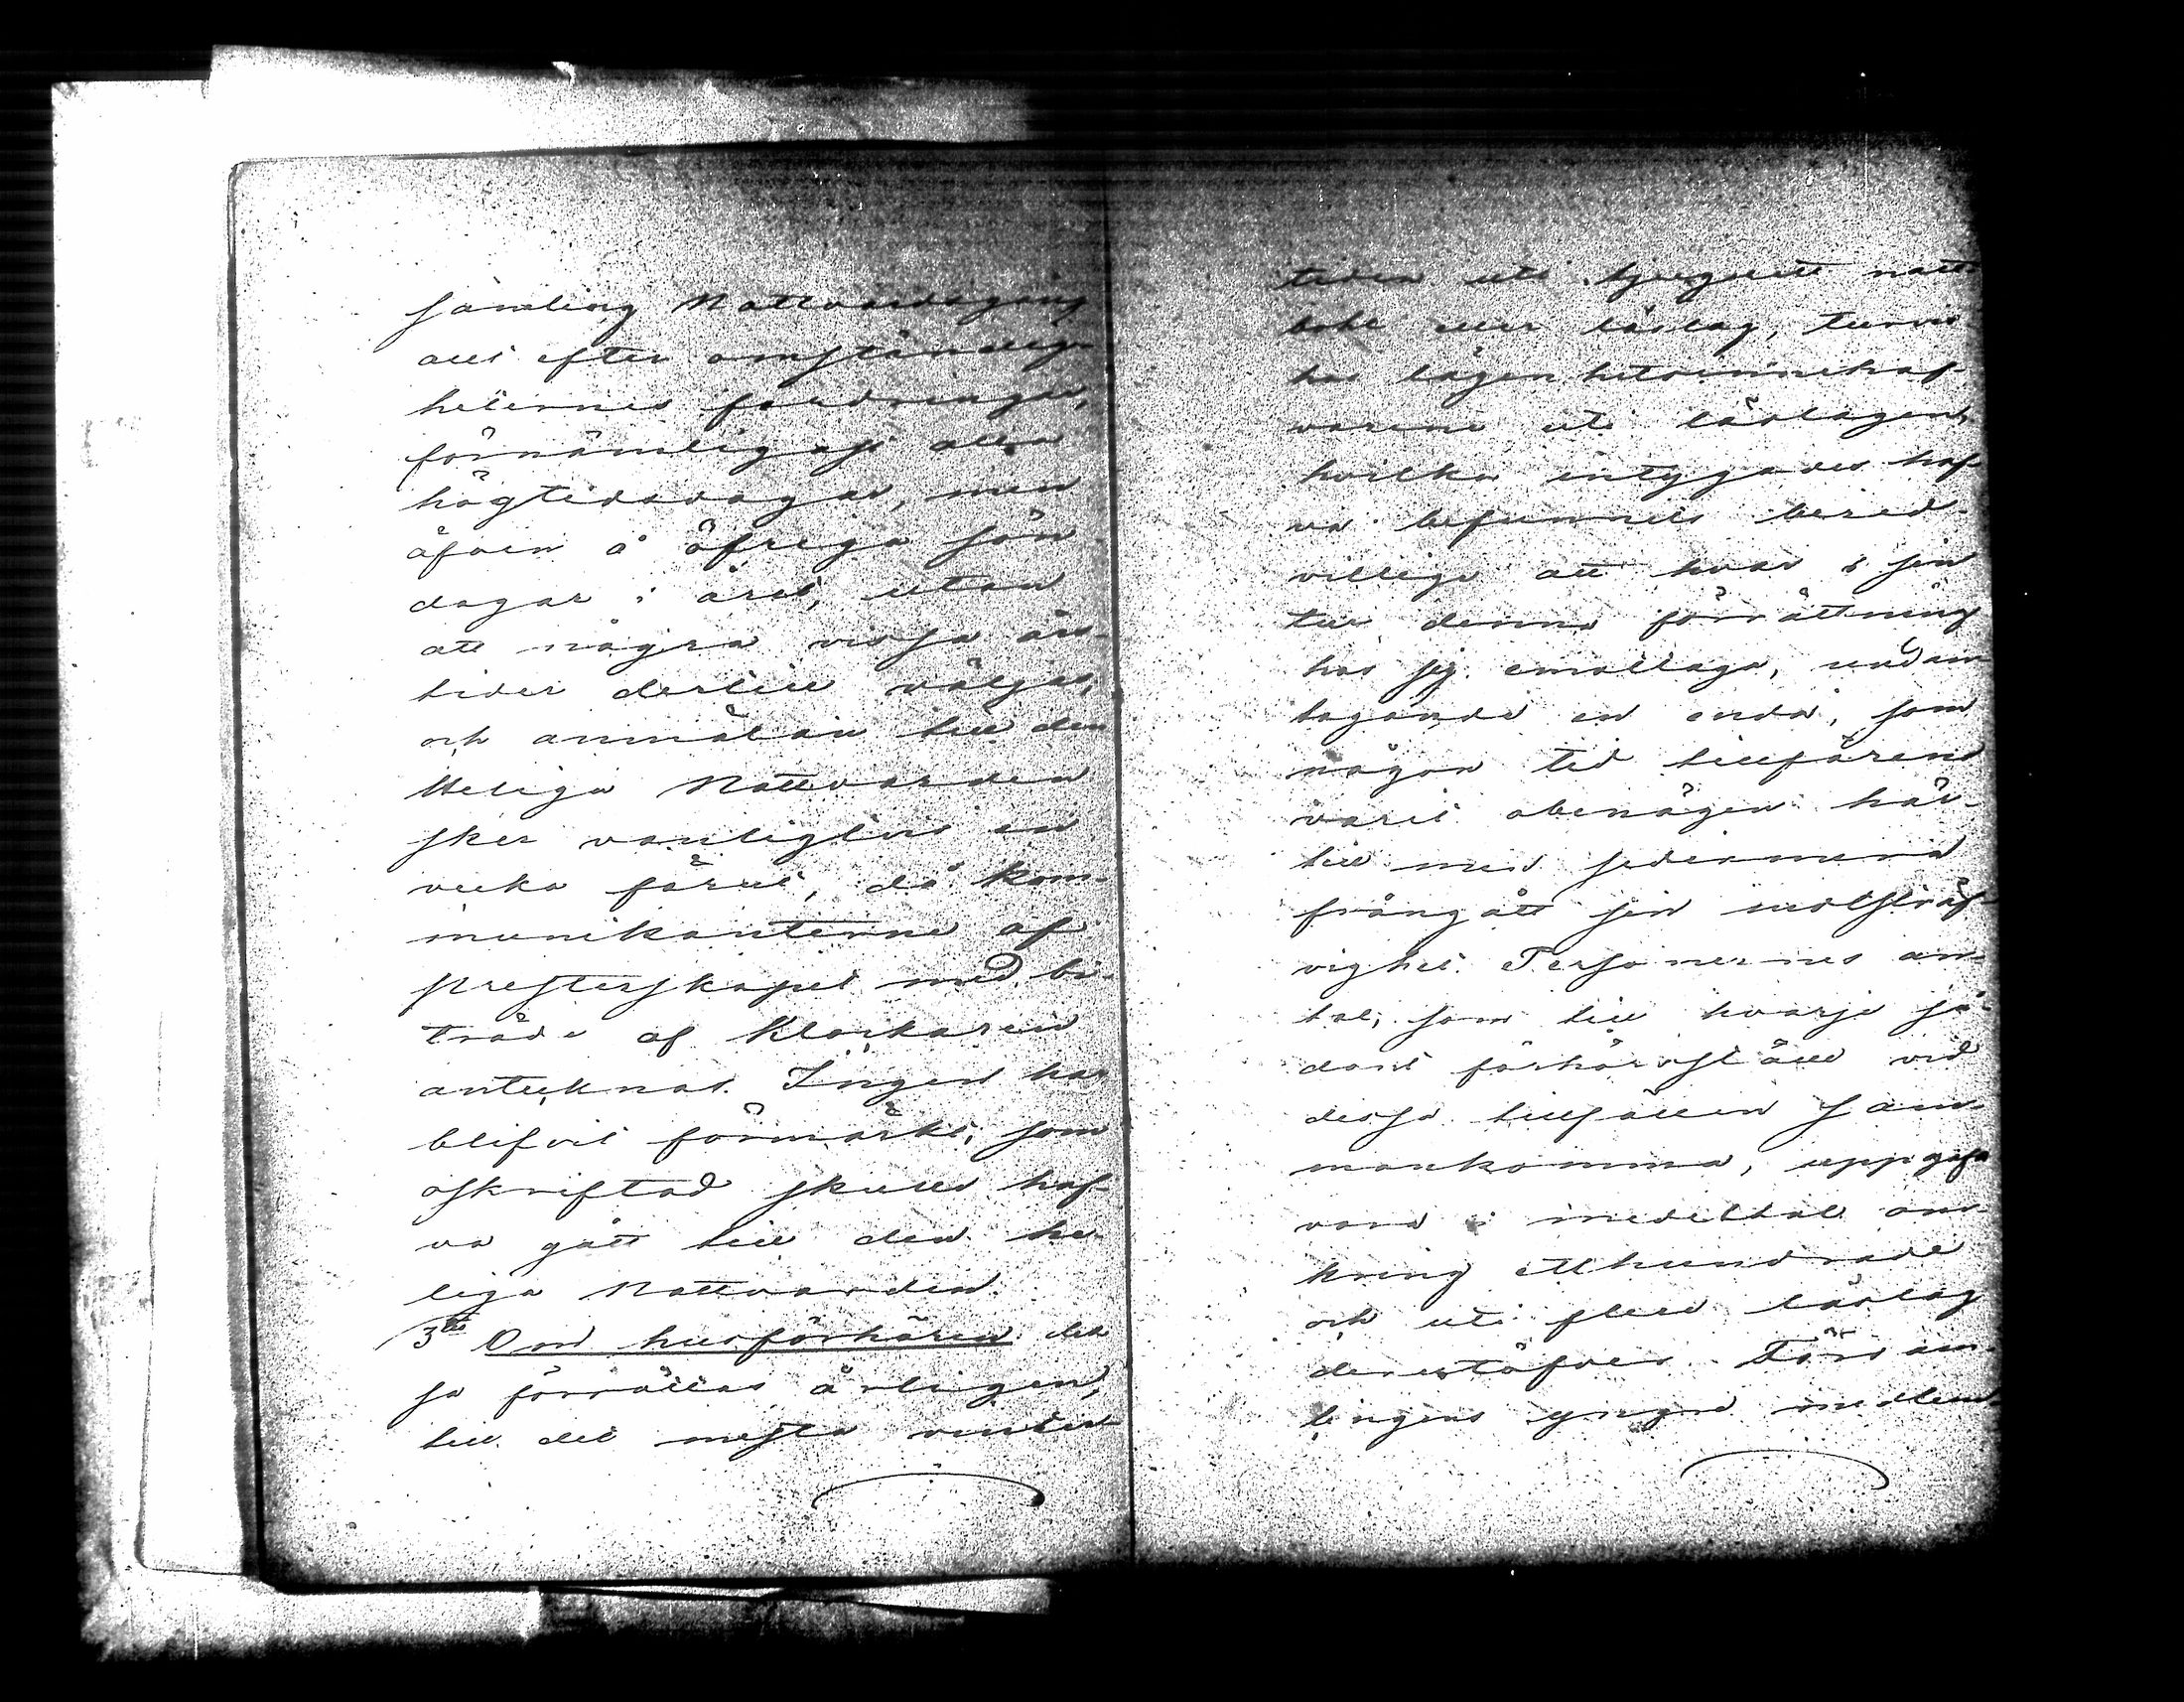 samling Nattvardsgång
allt efter omständig-
heternes fordringar,
förnämligast alla
högtidsdagar, men
äfven å öfriga sön-
dagar i året, utan
att några vissa års-
tider dertill väljas,
och anmälan till den
Heliga Nattvarden
sker vanligtvis en
vecka förut, då kom-
munikanterne af
presterskapet med bi-
träde af Klockaren
antecknas. Ingen har
blifvit förmärkt, som
oskriftad skulle haf-
va gått till den he-
liga Nattvarden.
3tio Om husförhören des-
sa förrättas årligen,
till det mesta vinter
tiden uti tjuguett
eller läslag, turvis
hos lägenhetsinnehaf-
varene uti läslagen,
hvilka intygades haf-
va befunnits bered-
villige att hvar i sin
tur denna förrättning
hos sig emottaga, undan-
tagande en enda, som
någon tid tillförene
varit obenägen här-
till men sedermera
frångått sin motsträf-
vighet. Personernes an-
tal, som till hvarje så-
dant förhörsställe vid
dessa tillfällen sam-
mankomma, uppgafs
vara i medeltal om-
kring etthundrade
och uti flere läslag
derutöfver. Försam-
lingens yngre medlem-